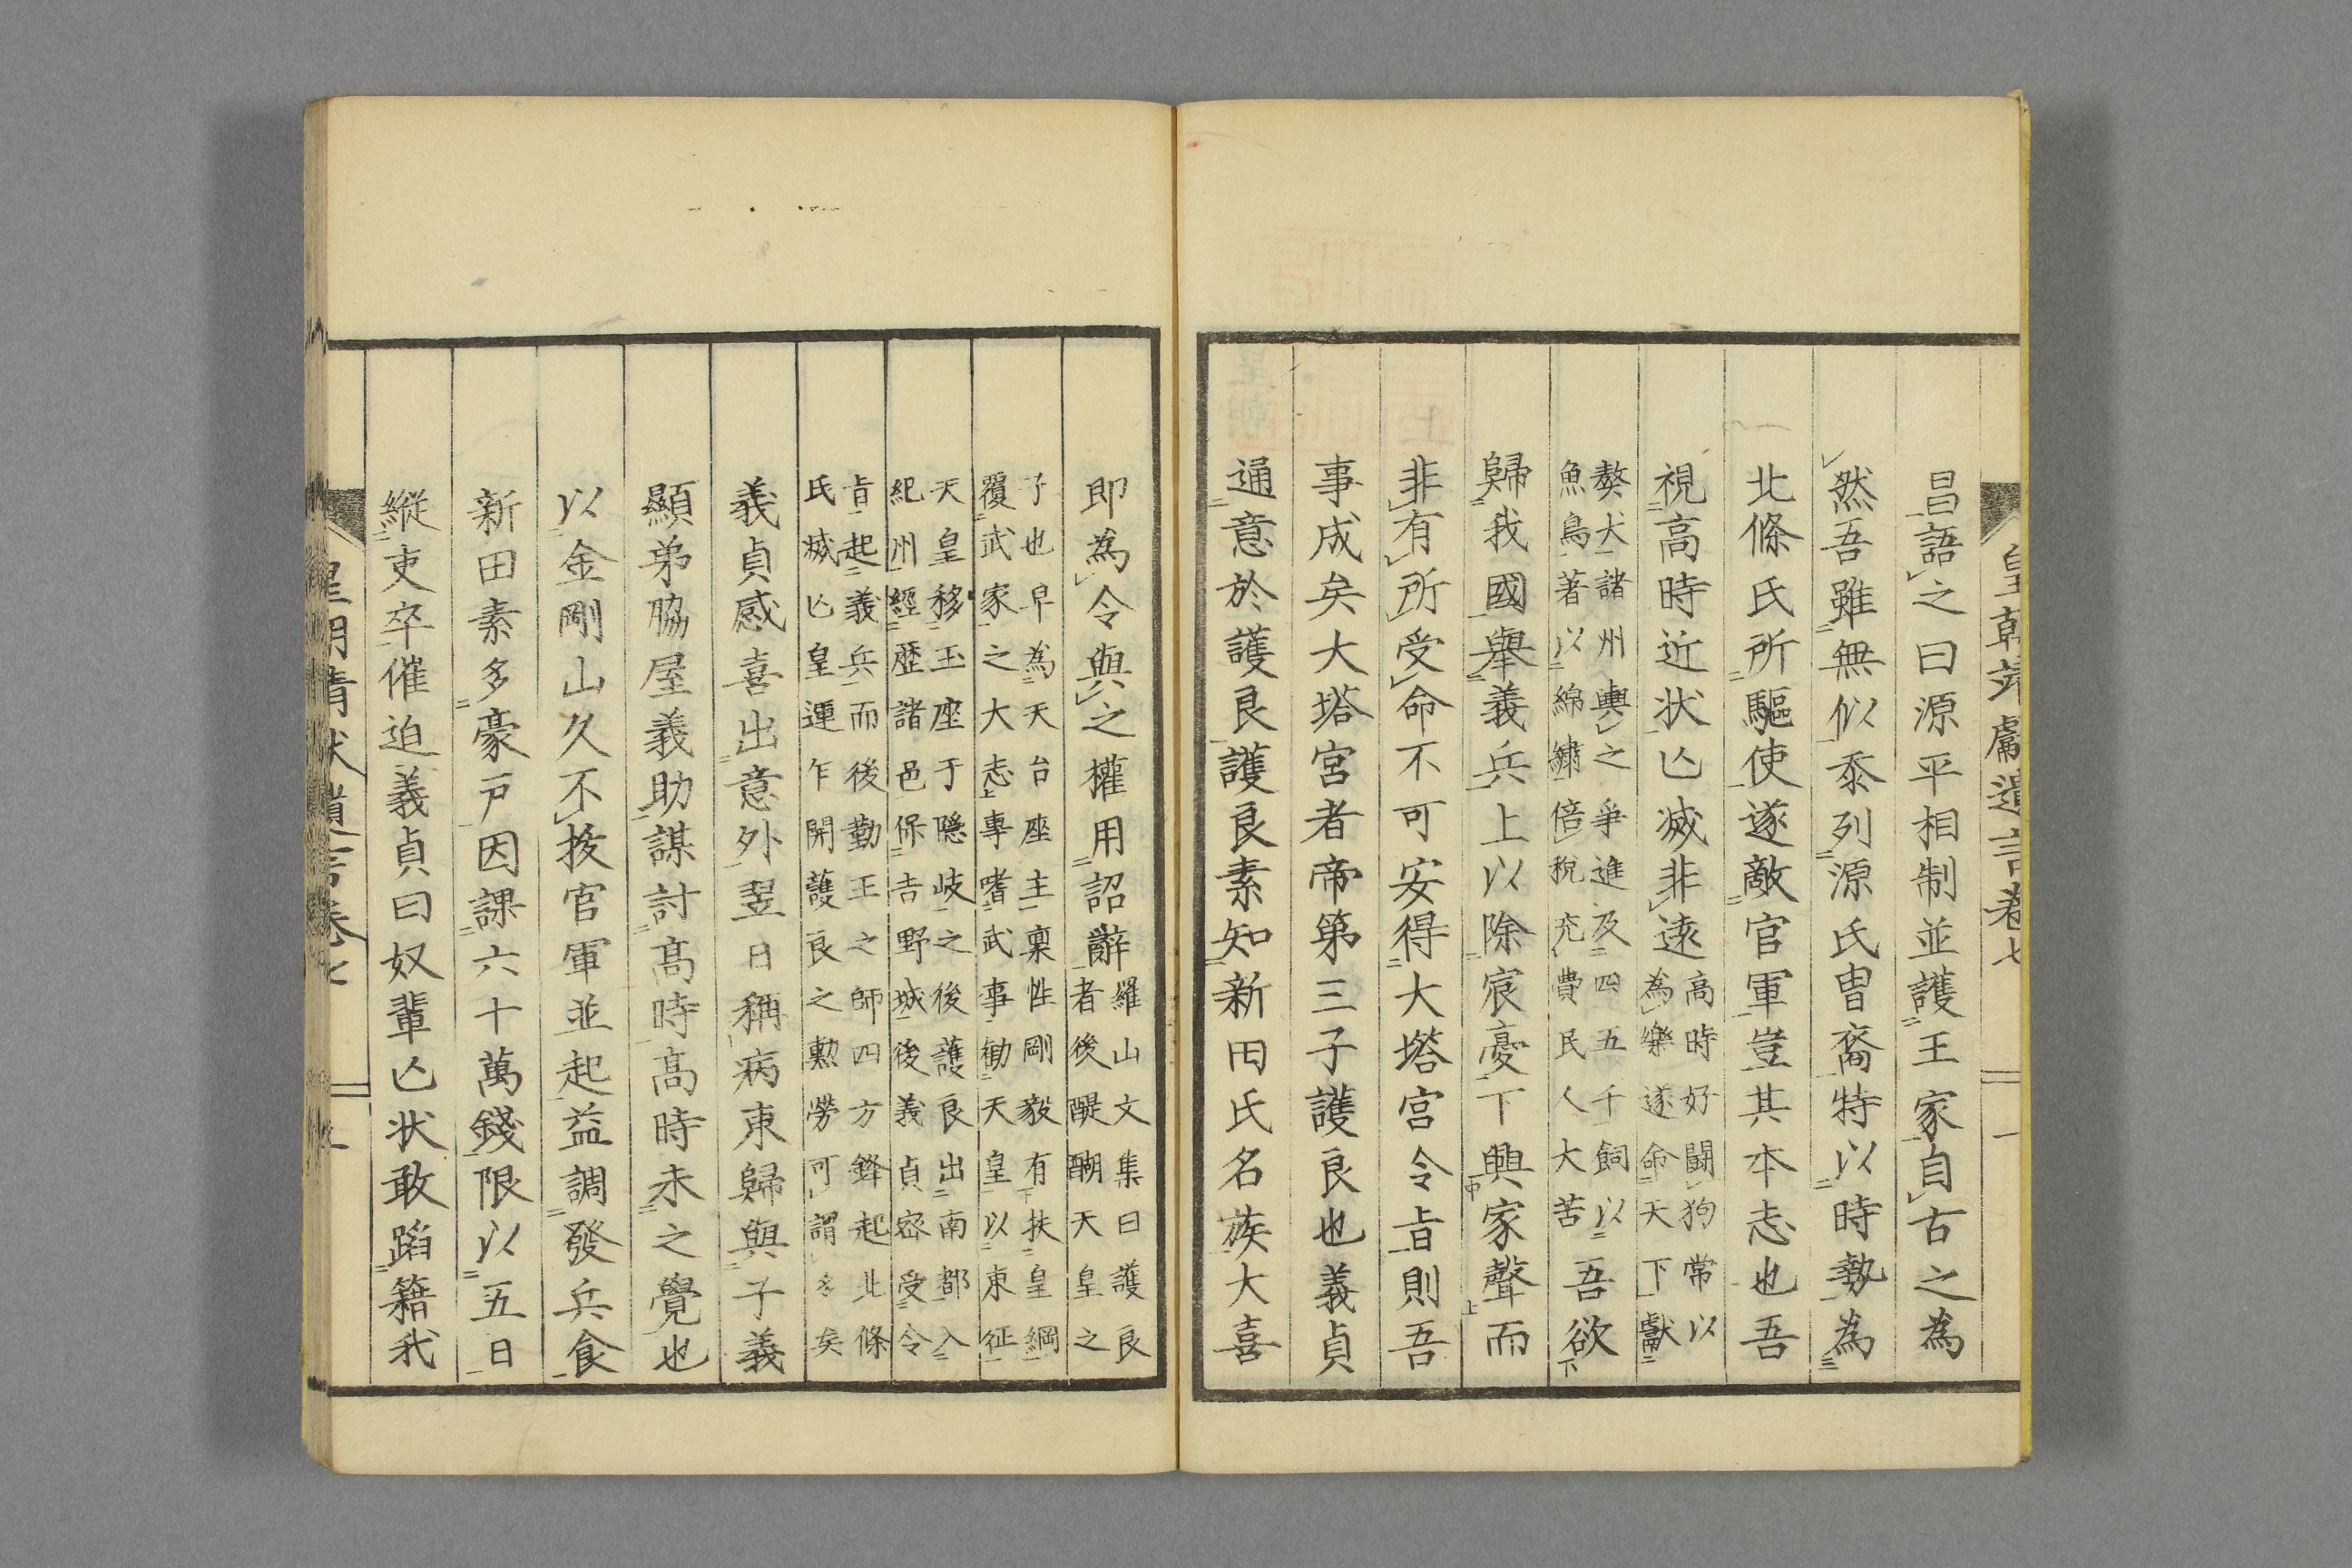 昌語之曰源平相制並護王家自古之為
然吾雖無似忝列源氏冑裔特以時勢為
北條氏所驅使遂敵官軍豈其本志也吾
視高時近状亾滅非遠高時好闘狗常以
為樂遂命天下獻
獒犬諸州輿之爭進及四五千飼以
魚鳥著以綿繡倍税充費民人大苦吾欲
歸我國舉義兵上以除宸憂下興家聲而
非有所受命不可安得大塔宮令旨則吾
事成矣大塔宮者帝第三子護良也義貞
通意於護良護良素知新田氏名族大喜
即為令與之權用詔辭羅山文集曰護良
者後醍醐天皇之
子也早為天台座主稟性剛毅有扶皇綱
覆武家之大志專嗜武事勧天皇以東征
天皇移玉座于隱岐之後護良出南都入
紀州經歴諸邑保吉野城後義貞密受令
旨起義兵而後勤王之師四方鋒起北條
氏滅亾皇運乍開護良之勲勞可謂多矣
義貞感喜出意外翌日稱病東歸與子義
顯弟脇屋義助謀討高時高時未之覺也
以金剛山久不拔官軍並起益調發兵食
新田素多豪戸因課六十萬錢限以五日
縦吏卒催迫義貞曰奴輩亾状敢蹈籍我